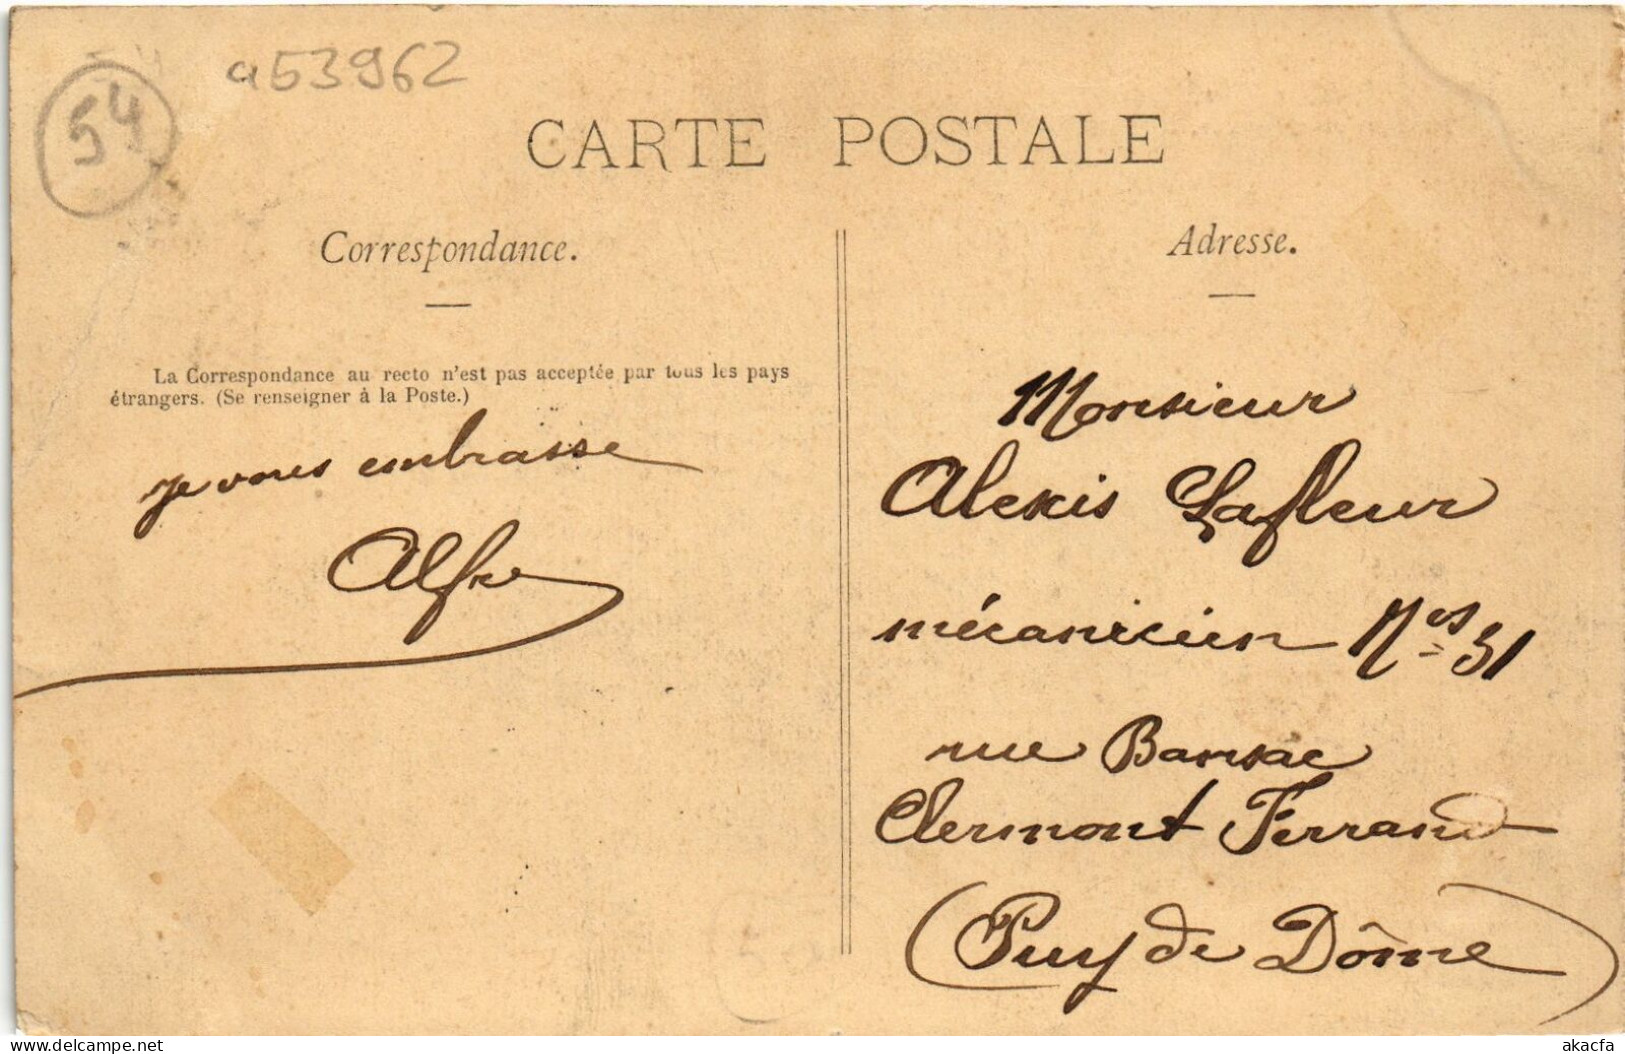 a53962
54
CARTE POSTALE
Correspondance.
La Correspondance au recto n'est pas acceptée par tous les pays
étrangers. (Se renseigner à la Poste.)
je vous embrasse
Alfre
Adresse.
Monsieur
Alexis Lafleur
mécanicien Nos 31
rue Bansac
Clermont Ferrand
(Puy de Dôme)
akacfa